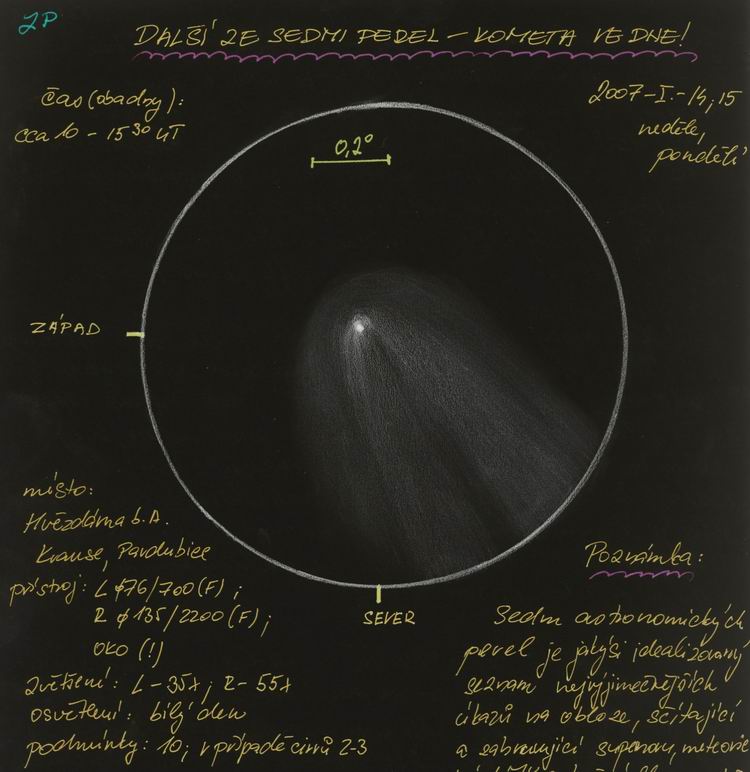 ZP
DALŠÍ ZE SEDMI PEREL – KOMETA VE DNE!
čas (obadny):
cca 10 – 15³⁰ UT
2007-I.-14,15
neděle,
pondělí
0,2°
ZÁPAD
SEVER
místo:
Hvězdárna b. A.
Krause, Pardubice
přístroj: L ϕ76/700 (F);
R ϕ135/2200 (F);
OKO (!)
zvětšení: L-35x; R-55x
osvětlení: bílý den
podmínky: 10; v případě cirrů 2-3
Poznámka:
Sedm astronomických
perel je jakýsi idealizovaný
seznam nejvýjimečnějších
úkazů na obloze, sčítající
a zahrnující supernovu, meteoric